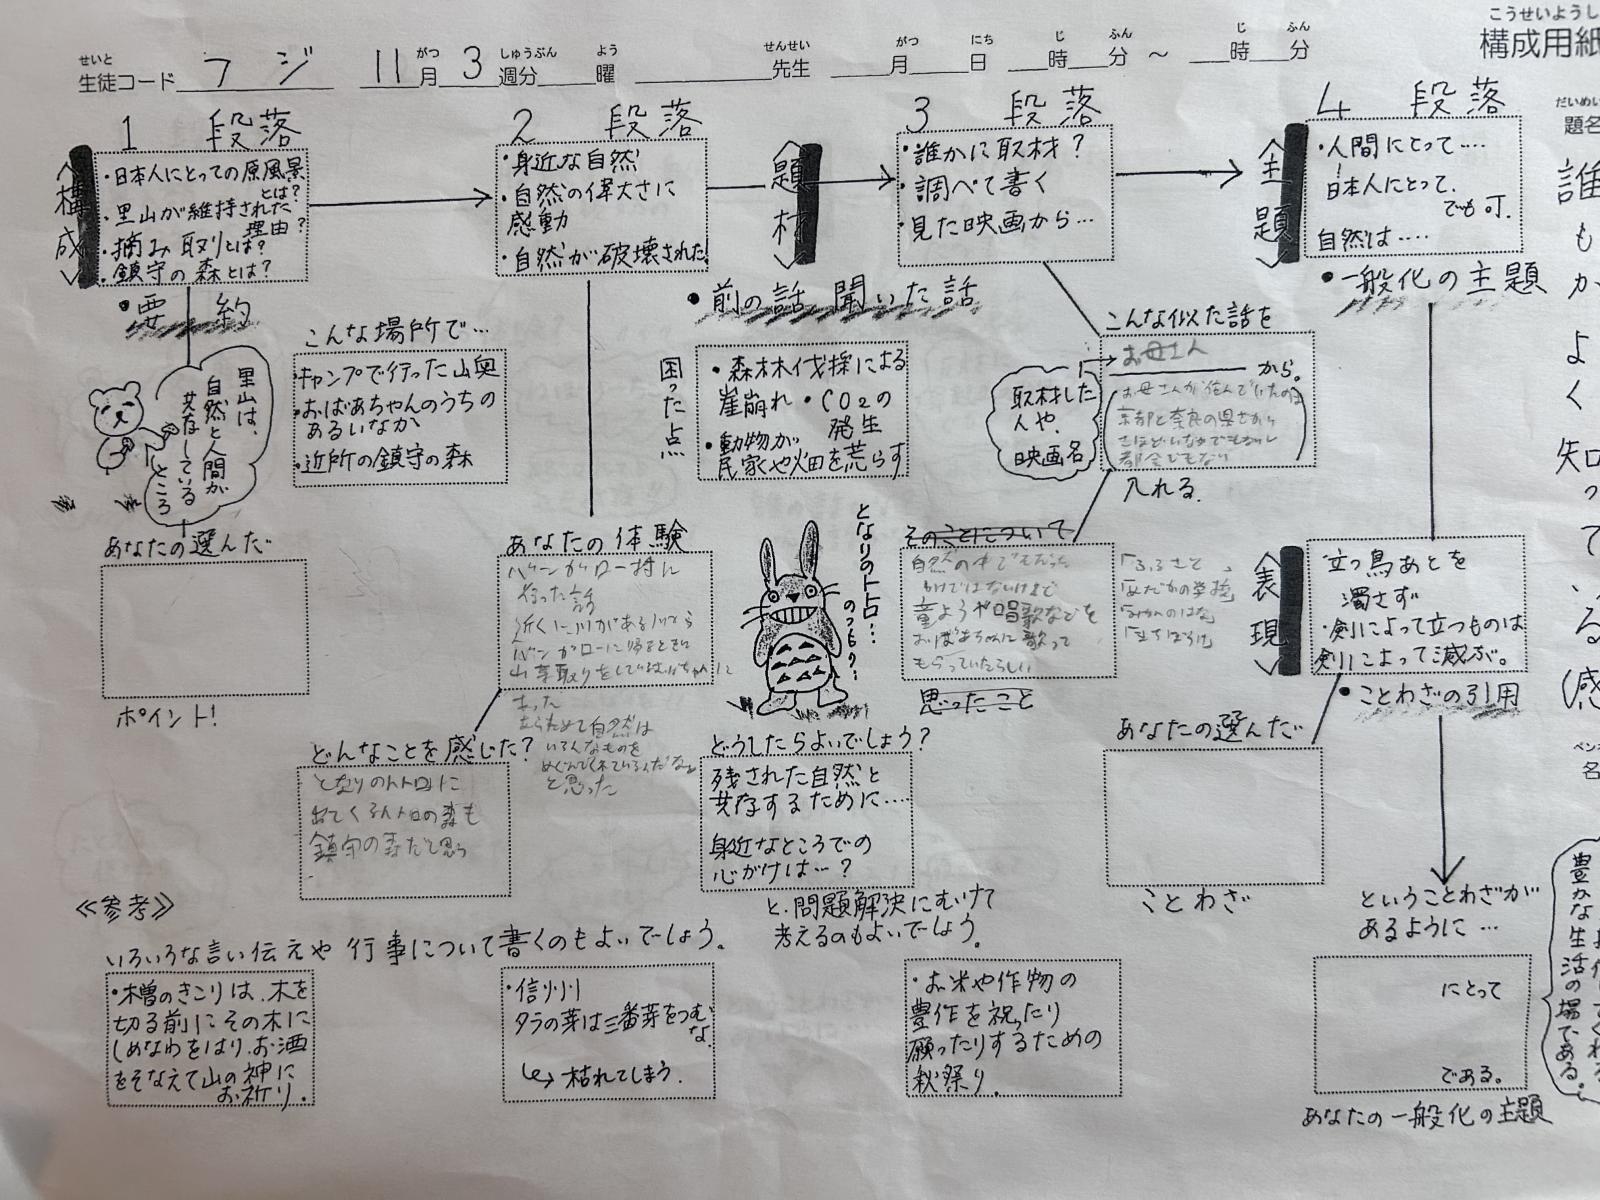 こうせいようし
構成用紙
せいと
生徒コード フジ 11月 3週分 曜 先生 月 日 時 分 ～ 時 分
がつ しゅうぶん よう せんせい がつ にち じ ふん じ ふん
1 段落
〈構成〉
・日本人にとっての原風景
とは?
・里山が維持された
理由?
・摘み取りとは?
・鎮守の森とは?
・要約
里山は、
自然と人間が
共存している
ところ
こんな場所で…
・キャンプで行った山奥
・おばあちゃんのうちの
あるいなか
・近所の鎮守の森
あなたの選んだ
ポイント!
2 段落
・身近な自然
・自然の偉大さに
感動
・自然が破壊された!
あなたの体験
バンガローに帰るとき
山菜取りをしている
あらためて自然は
いろんなものを
めぐんでくれているんだなぁ
と思った
どんなことを感じた?
となりのトトロに
出てくるトトロの森も
鎮守の森だと思う
〈題材〉
・前の話 聞いた話
3 段落
・誰かに取材?
・調べて書く
・見た映画から…
困った点
・森林伐採による
崖崩れ・CO2の
発生
・動物が
民家や畑を荒らす
こんな似た話を
お母さん
から。
取材した
人や、
映画名
お母さんが住んでいたのは
京都と奈良の県さかい
さほどいなかでもないし
都会でもない
入れる。
となりのトトロ…
のつもり…
そのことについて
自然の中で
わけではないけれど
童ようや唱歌などを
おばあちゃんに歌って
もらっていたらしい
「ふるさと」
「めだかの学校」
「みかんのはな」
思ったこと
どうしたらよいでしょう?
残された自然と
共存するために…
身近なところでの
心がけは…?
と、問題解決にむけて
考えるのもよいでしょう。
4 段落
〈主題〉
・人間にとって…
日本人にとって、
でも可.
自然は…
・一般化の主題
〈表現〉
・立つ鳥あとを
濁さず
・剣によって立つものは
剣によって滅が。
・ことわざの引用
あなたの選んだ
ことわざ
ということわざが
あるように…
にとって
である。
あなたの一般化の主題
≪参考≫
いろいろな言い伝えや行事について書くのもよいでしょう。
・木曽のきこりは、木を
切る前にその木に
しめなわをはり、お酒
をそなえて山の神に
お祈り.
・信州
タラの芽は三番芽をつむな
↳ 枯れてしまう.
・お米や作物の
豊作を祝ったり
願ったりするための
秋祭り.
だいめい
題名
誰
も
か
よ
く
知
っ
て
い
る
(感
ペン
名
豊かな生活の場である。